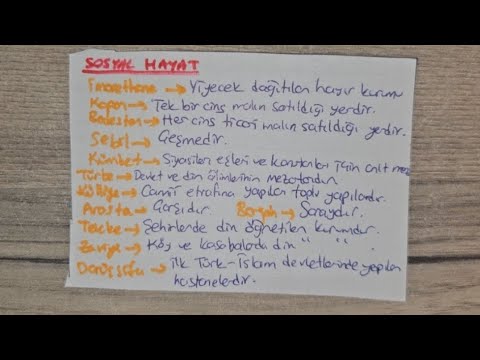 SOSYAL HAYAT
İmarethane → Yiyecek dağıtılan hayır kurumu
Kapan → Tek bir cins malın satıldığı yerdir.
Bedesten → Her cins ticari malın satıldığı yerdir.
Sebil → Çeşmedir.
Kümbet → Siyasileri eşleri ve komutanlar için anıt mezar
Türbe → Devlet ve din âlimlerinin mezarlarıdır.
Külliye → Camii etrafına yapılan toplu yapılardır.
Arasta → Çarşıdır. Bargah → Saraydır.
Tekke → Şehirlerde din öğretilen kurumdur.
Zaviye → Köy ve kasabalarda din " " "
Darüşşifa → İlk Türk-İslam devletlerinde yapılan
hastanelerdir.